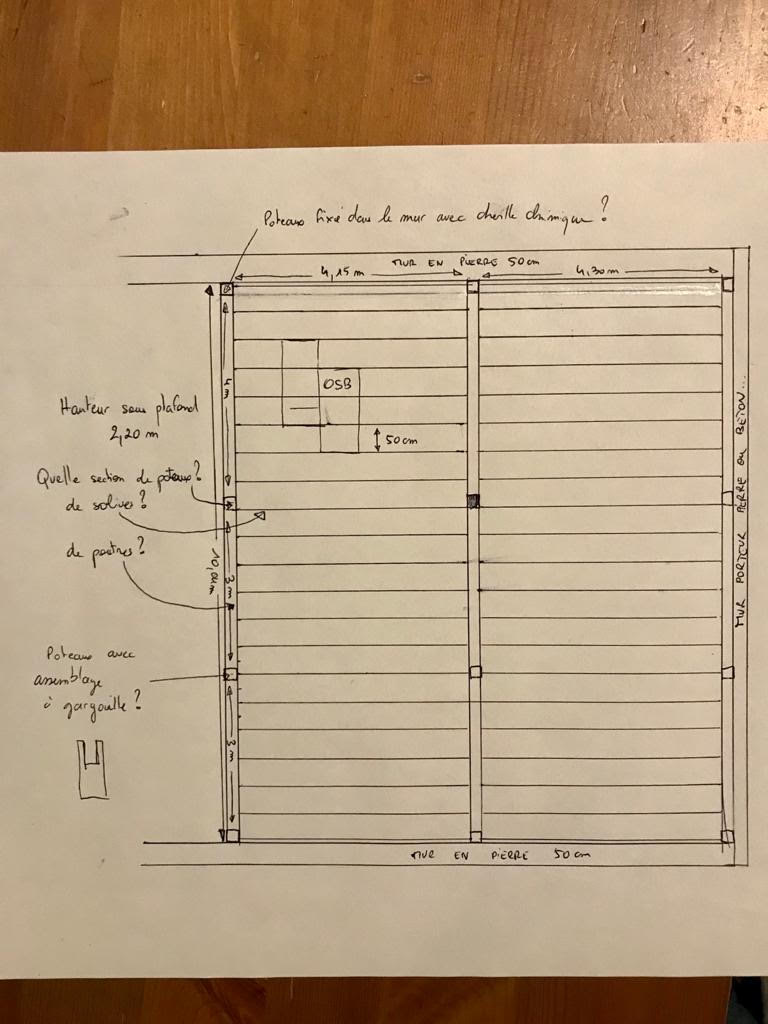 Poteaux fixé dans le mur avec cheville chimique ?
MUR EN PIERRE 50cm
4,15 m
4,30 m
4m
OSB
50cm
Hauteur sous plafond
2,20 m
Quelle section de poteaux ?
de solives ?
de poutres ?
10,00m
3m
Poteaux avec
assemblage
à gargouille ?
3m
MUR PORTEUR PIERRE OU BÉTON...
MUR EN PIERRE 50cm